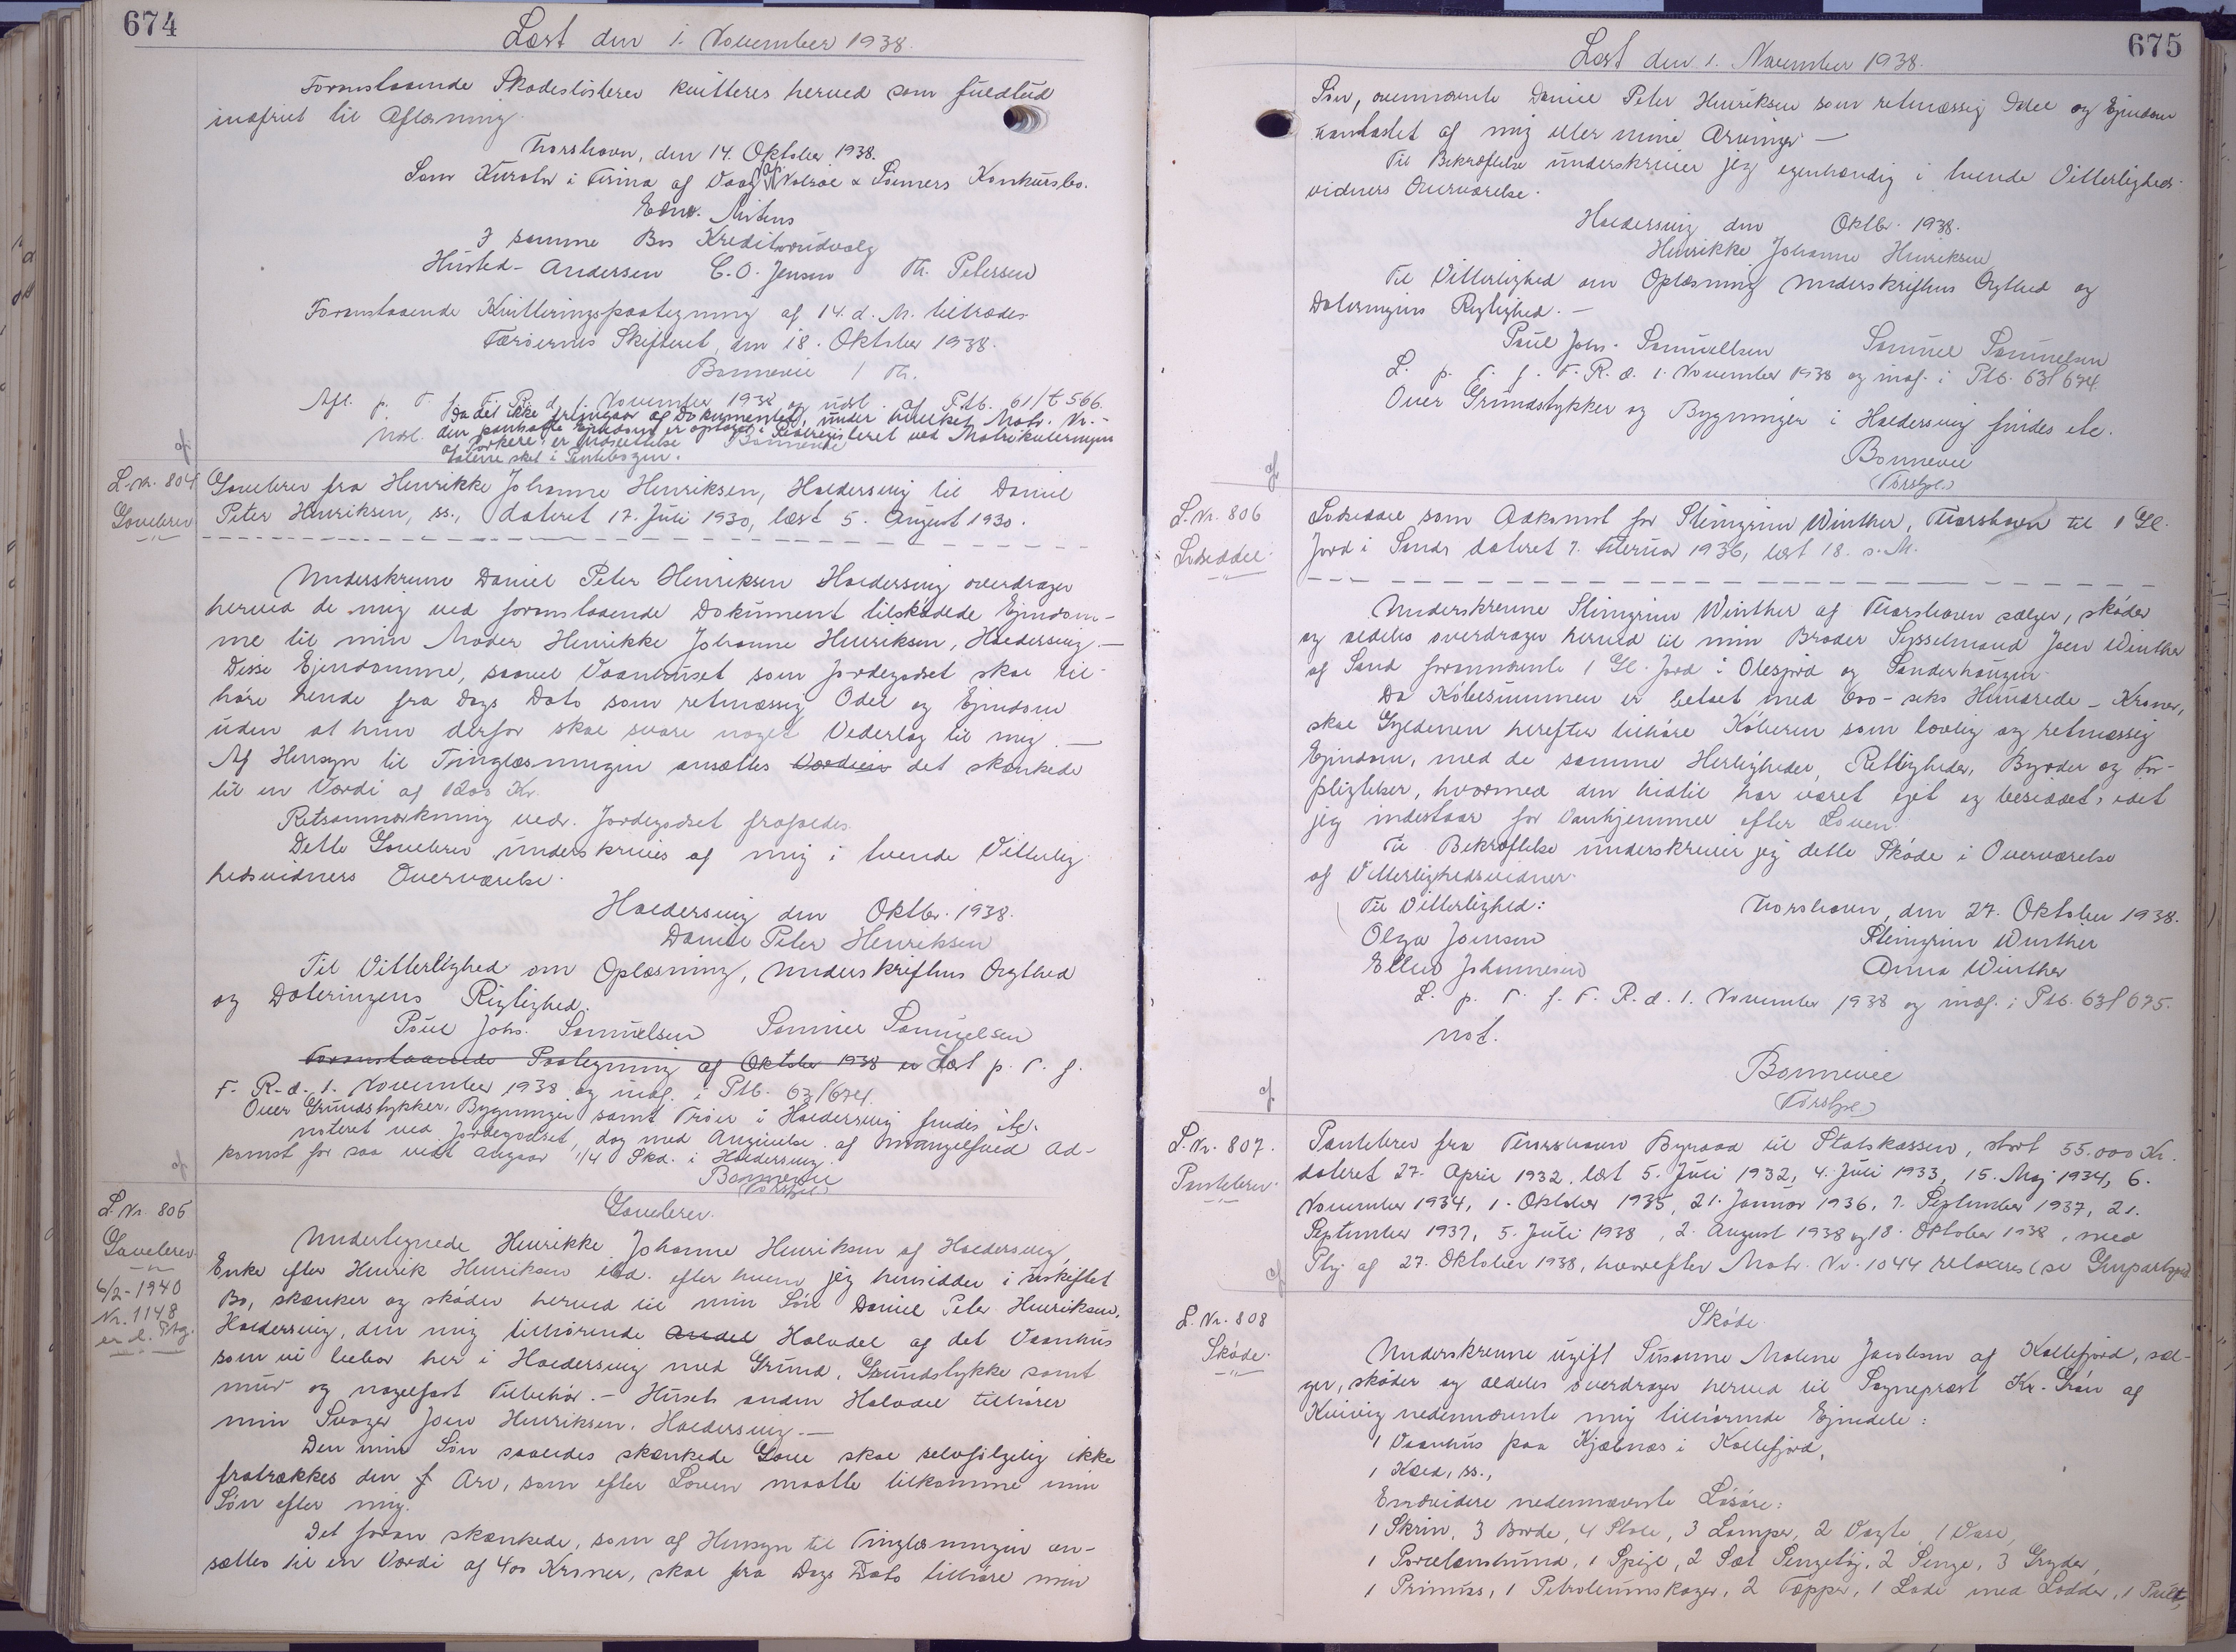 674
Læst den 1. November 1938.
Foranstaaende Skadesløsbrev kvitteres herved som fuldtud
indfriet til Aflæsning.
Thorshavn, den 14. Oktober 1938.
Som Kurator i Firma af Vaag
& Sønners Konkursbo.
Edw. Mitens
I samme Bos Kreditorudvalg
Husted-Andersen C. O. Jensen Th. Petersen
Foranstaaende Kvitteringspaategning af 14. d. M. tiltrædes
Færøernes Skifteret, den 18. Oktober 1938.
Bonnevie / Th.
Afl. p. T. f. F. R. d. 1. November 1938 og udsl. af Ptb. 61/t 566.
Da det ikke fremgaar af Dokumentet, under hvilket Matr. Nr.
den pantsatte Ejendom er optaget i Realregisteret ved Matrikuleringen
er
Bonnevie
slettelse sket i Pantebogen.
L. Nr. 804
Gavebrev
Gavebrev fra Henrikke Johanne Henriksen, Haldersvig til Daniel
Peter Henriksen, ss., dateret 17. Juli 1930, læst 5. August 1930.
Underskrevne Daniel Peter Henriksen Haldersvig overdrager
herved de mig ved foranstaaende Dokument tilskødede Ejendom-
me til min Moder Henrikke Johanne Henriksen, Haldersvig.—
Disse Ejendomme, saavel Vaanhuset som Jordegodset skal til-
høre hende fra Dags Dato som retmæssig Odel og Ejendom
uden at hun derfor skal svare noget Vederlag til mig.—
Af Hensyn til Tinglæsningen ansættes Værdien det skænkede
til en Værdi af 1200 Kr.
Retsanmærkning vedr. Jordegodset frafaldes.
Dette Gavebrev underskrives af mig i tvende Vitterlig-
hedsvidners Overværelse.
Haldersvig den Oktbr. 1938.
Daniel Peter Henriksen
Til Vitterlighed om Oplæsning, Underskriftens Ægthed
og Dateringens Rigtighed.
Poul Johs. Samuelsen Samuel Samuelsen
Foranstaaende Paategning af Oktober 1938 er Læst p. T. f.
F. R. d. 1. November 1938 og indf. i Ptb. 63/674.
Over Grundstykker, Bygninger samt Trøer i Haldersvig findes ikke
noteret ved Jordegodset, dog med Angivelse af mangelfuld Ad-
komst for saa vidt angaar 1/4 Skd. i Haldersvig.
Bonnevie
(Vorstpl.)
L. Nr. 805
Gavebrev
6/2-1940
Nr. 1148
er l. Ptg.
Gavebrev.
Undertegnede Henrikke Johanne Henriksen af Haldersvig,
Enke efter Henrik Henriksen ibd. efter hvem jeg hensidder i uskiftet
Bo, skænker og skøder herved til min Søn Daniel Peter Henriksen,
Haldersvig, den mig tilhørende Andel Halvdel af det Vaanhus
som vi bebor her i Haldersvig med Grund, Grundstykke samt
mur og nagelfast Tilbehør.— Husets anden Halvdel tilhører
min Svoger Joen Henriksen, Haldersvig.—
Den min Søn saaledes skænkede Gave skal selvfølgelig ikke
fratrækkes den f Arv, som efter Loven maatte tilkomme min
Søn efter mig.
Det foran skænkede, som af Hensyn til Tinglæsningen an-
sættes til en Værdi af 400 Kroner, skal fra Dags Dato tilhøre min
675
Læst den 1. November 1938.
Søn, ovennævnte Daniel Peter Henriksen som retmæssig Odel og Ejendom
uantastet af mig eller mine Arvinger —
Til Bekræftelse underskriver jeg egenhændig i tvende Vitterligheds-
vidners Overværelse.
Haldersvig den Oktbr. 1938.
Henrikke Johanne Henriksen
Til Vitterlighed om Oplæsning Underskriftens Ægthed og
Dateringens Rigtighed.—
Poul Johs. Samuelsen Samuel Samuelsen
L. p. T. f. F. R. d. 1. November 1938 og indf. i Ptb. 63/674.
Over Grundstykker og Bygninger i Haldersvig findes ikke.
Bonnevie
(Vorstpl.)
L. Nr. 806
Lodseddel
Lodseddel som Adkomst for Steingrim Winther, Thorshavn til 1 Gl.
Jord i Sands dateret 7. Februar 1936, læst 18. s. M.
Underskrevne Steingrim Winther af Thorshavn sælger, skøder
og aldeles overdrager herved til min Broder Sysselmand Joen Winther
af Sand forannævnte 1 Gl. Jord i Olesjord og Sanderhaugen.
Da Købesummen er betalt med 600 - seks Hundrede - Kroner,
skal Gyldenen herefter tilhøre Køberen som lovlig og retmæssig
Ejendom, med de samme Herligheder, Rettigheder, Byrder og For-
pligtelser, hvormed den hidtil har været ejet og besiddet, idet
jeg indestaar for Vanhjemmel efter Loven.
Til Bekræftelse underskriver jeg dette Skøde i Overværelse
af Vitterlighedsvidner.
Til Vitterlighed: Thorshavn, den 27. Oktober 1938.
Olga Joensen Steingrim Winther
Ellen Johannesen Anna Winther
L. p. T. f. F. R. d. 1. November 1938 og indf. i Ptb. 63/675.
not.
Bonnevie
(Vorstpl.)
L. Nr. 807.
Pantebrev
Pantebrev fra Thorshavn Byraad til Statskassen, stort 55.000 Kr.
dateret 27. April 1932, læst 5. Juli 1932, 4. Juli 1933, 15. Maj 1934, 6.
November 1934, 1. Oktober 1935, 21. Januar 1936, 7. September 1937, 21.
September 1937, 5. Juli 1938, 2. August 1938 og 18. Oktober 1938, med
Ptg. af 27. Oktober 1938, hvorefter Matr. Nr. 1044 relaxeres (se Genpartsprd.
L. Nr. 808
Skøde
Skøde.
Underskrevne ugift Susanne Malene Jacobsen af Kollefjord, sæl-
ger, skøder og aldeles overdrager herved til Sognepræst Kr. Grøn af
Kvivig nedennævnte mig tilhørende Ejendele:
1 Vaanhus paa Kjæbnæs i Kollefjord,
1 Kæld, ss.,
Endvidere nedennævnte Løsøre:
1 Skrin, 3 Borde, 4 Stole, 3 Lamper, 2 Vægte, 1 Vase,
1 Porcelænshund, 1 Spejl, 2 Sæt Sengetøj, 2 Senge, 3 Gryder,
1 Primus, 1 Petroleumskoger, 2 Tæpper, 1 Lade med Lodder, 1 Pult,